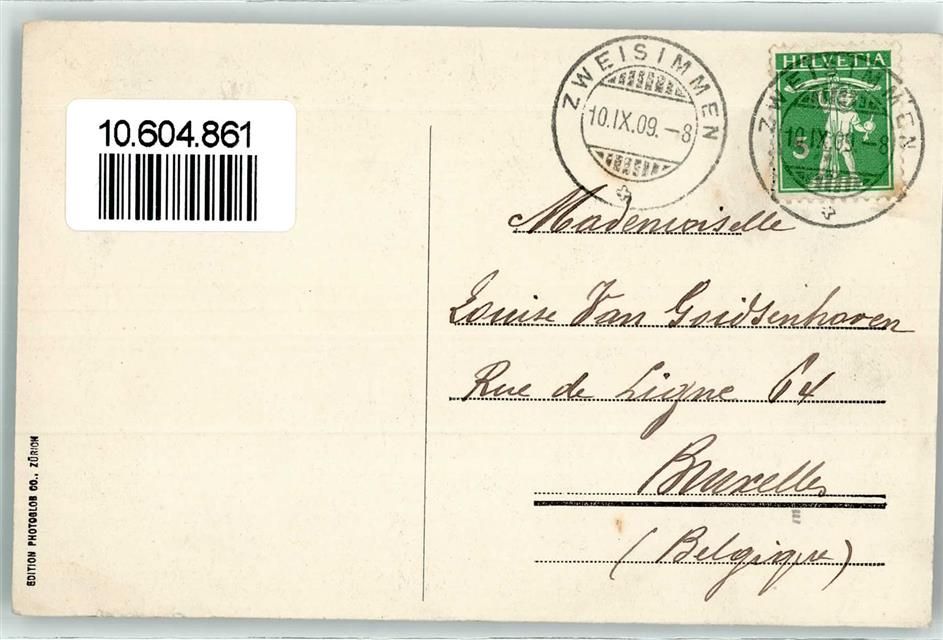 10.604.861
ZWEISIMMEN
10.IX.09.-8
HELVETIA
5
ZWEISIMMEN
10.IX.09.-8
Mademoiselle
Louise Van Goidsenhoven
Rue de Ligne 64
Bruxelles
(Belgique)
EDITION PHOTOGLOB CO., ZÜRICH